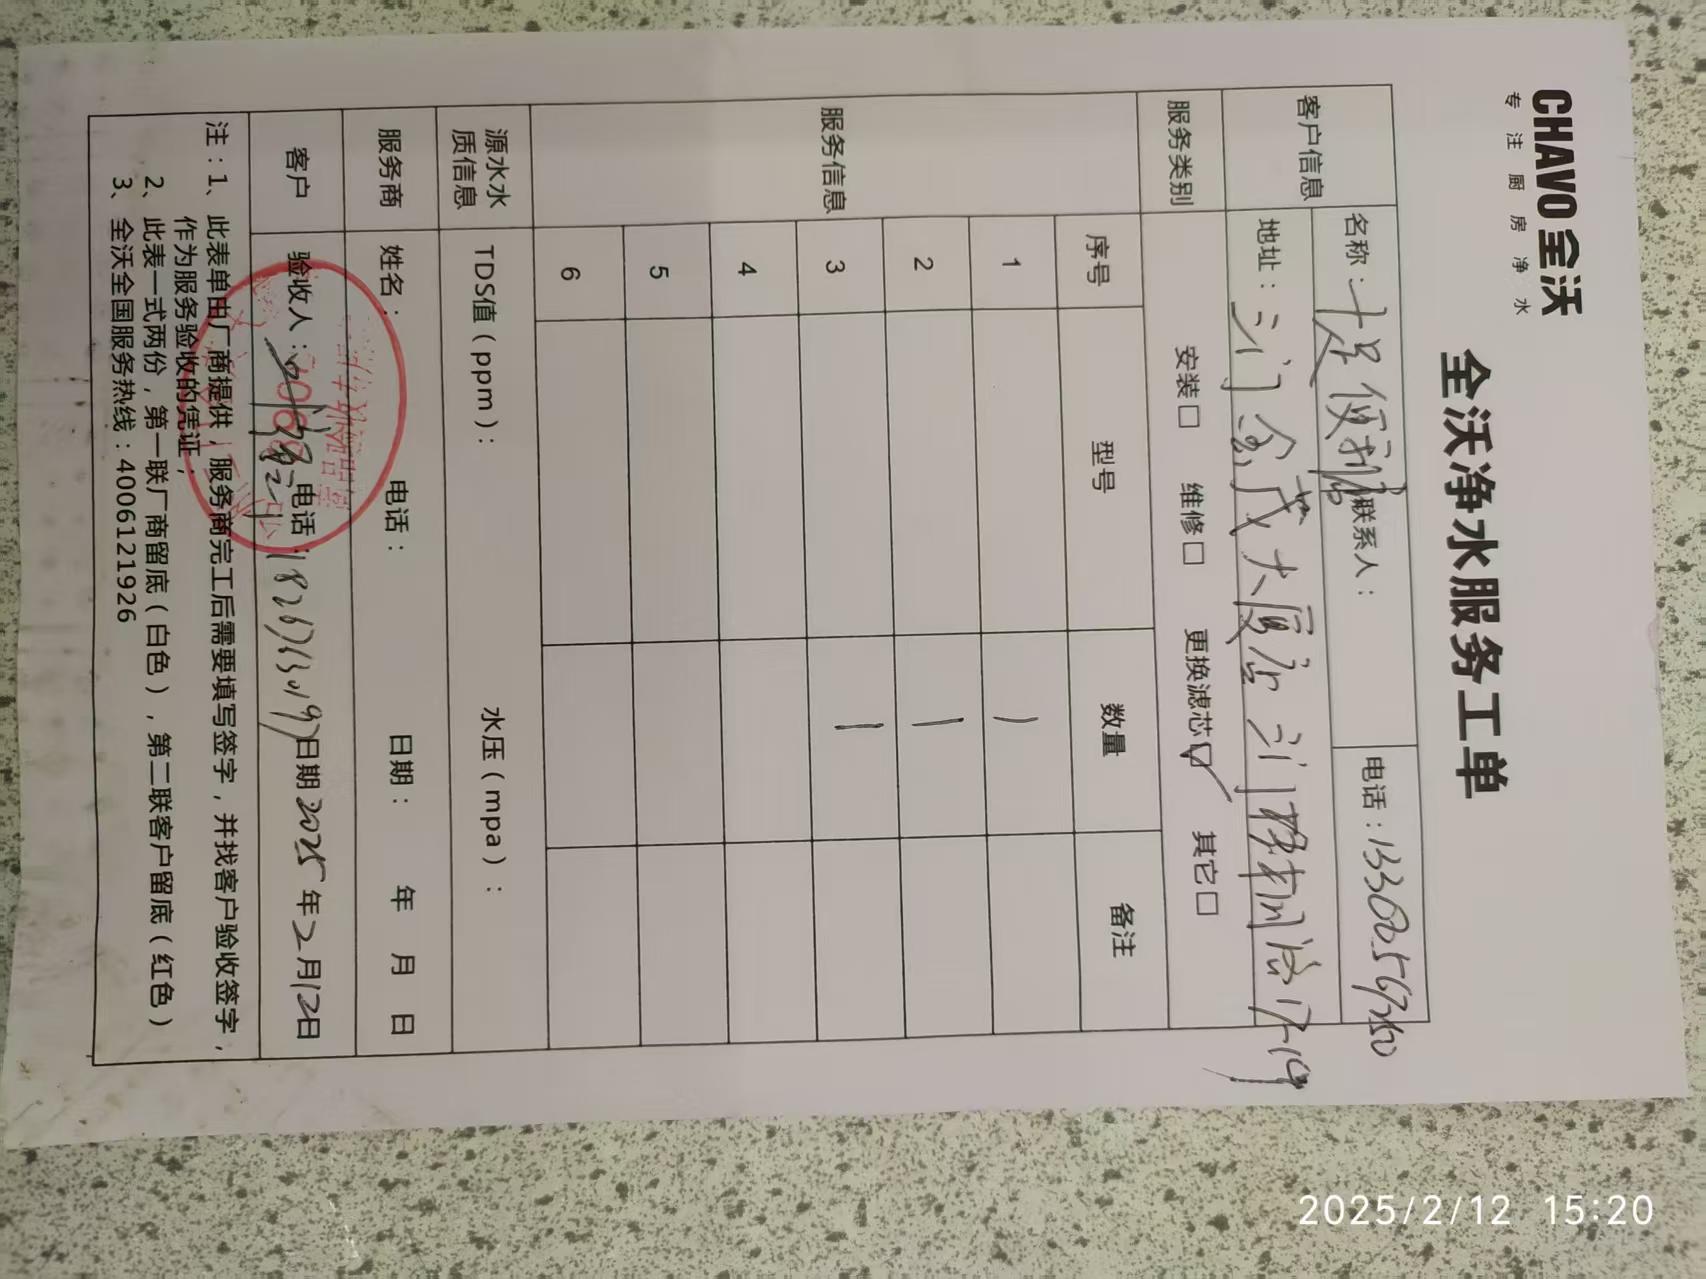 CHAVO 全沃
专注厨房净水
全沃净水服务工单
客户信息 名称：十足便利 联系人： 电话：
地址：三门金茂大厦店 三门
服务类别 安装□ 维修□ 更换滤芯☑ 其它□
服务信息 序号 型号 数量 备注
1 1
2 1
3 1
4
5
6
源水水质信息 TDS值（ppm）： 水压（mpa）：
服务商 姓名： 电话： 日期： 年 月 日
客户 验收人： 电话： 日期2025年2月12日
注：1、此表单由厂商提供，服务商完工后需要填写签字，并找客户验收签字，
作为服务验收的凭证；
2、此表一式两份，第一联厂商留底（白色），第二联客户留底（红色）
3、全沃全国服务热线：4006121926
2025/2/12 15:20